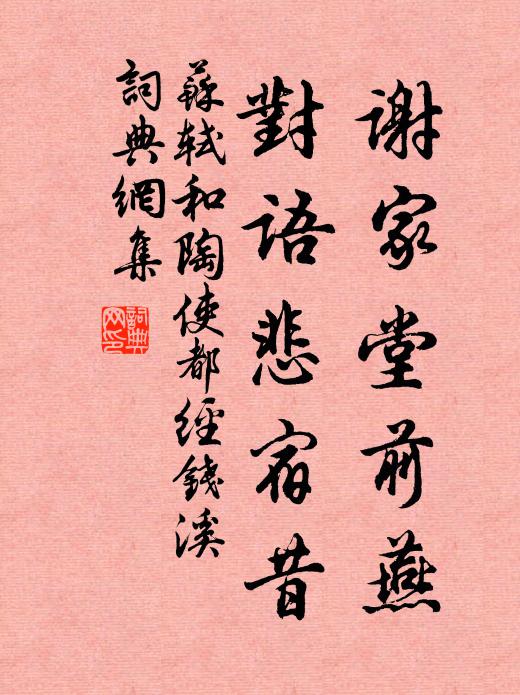 謝家堂前燕
對語悲宿昔
蘇軾和陶使都經錢溪
詞典網集
詞典網印